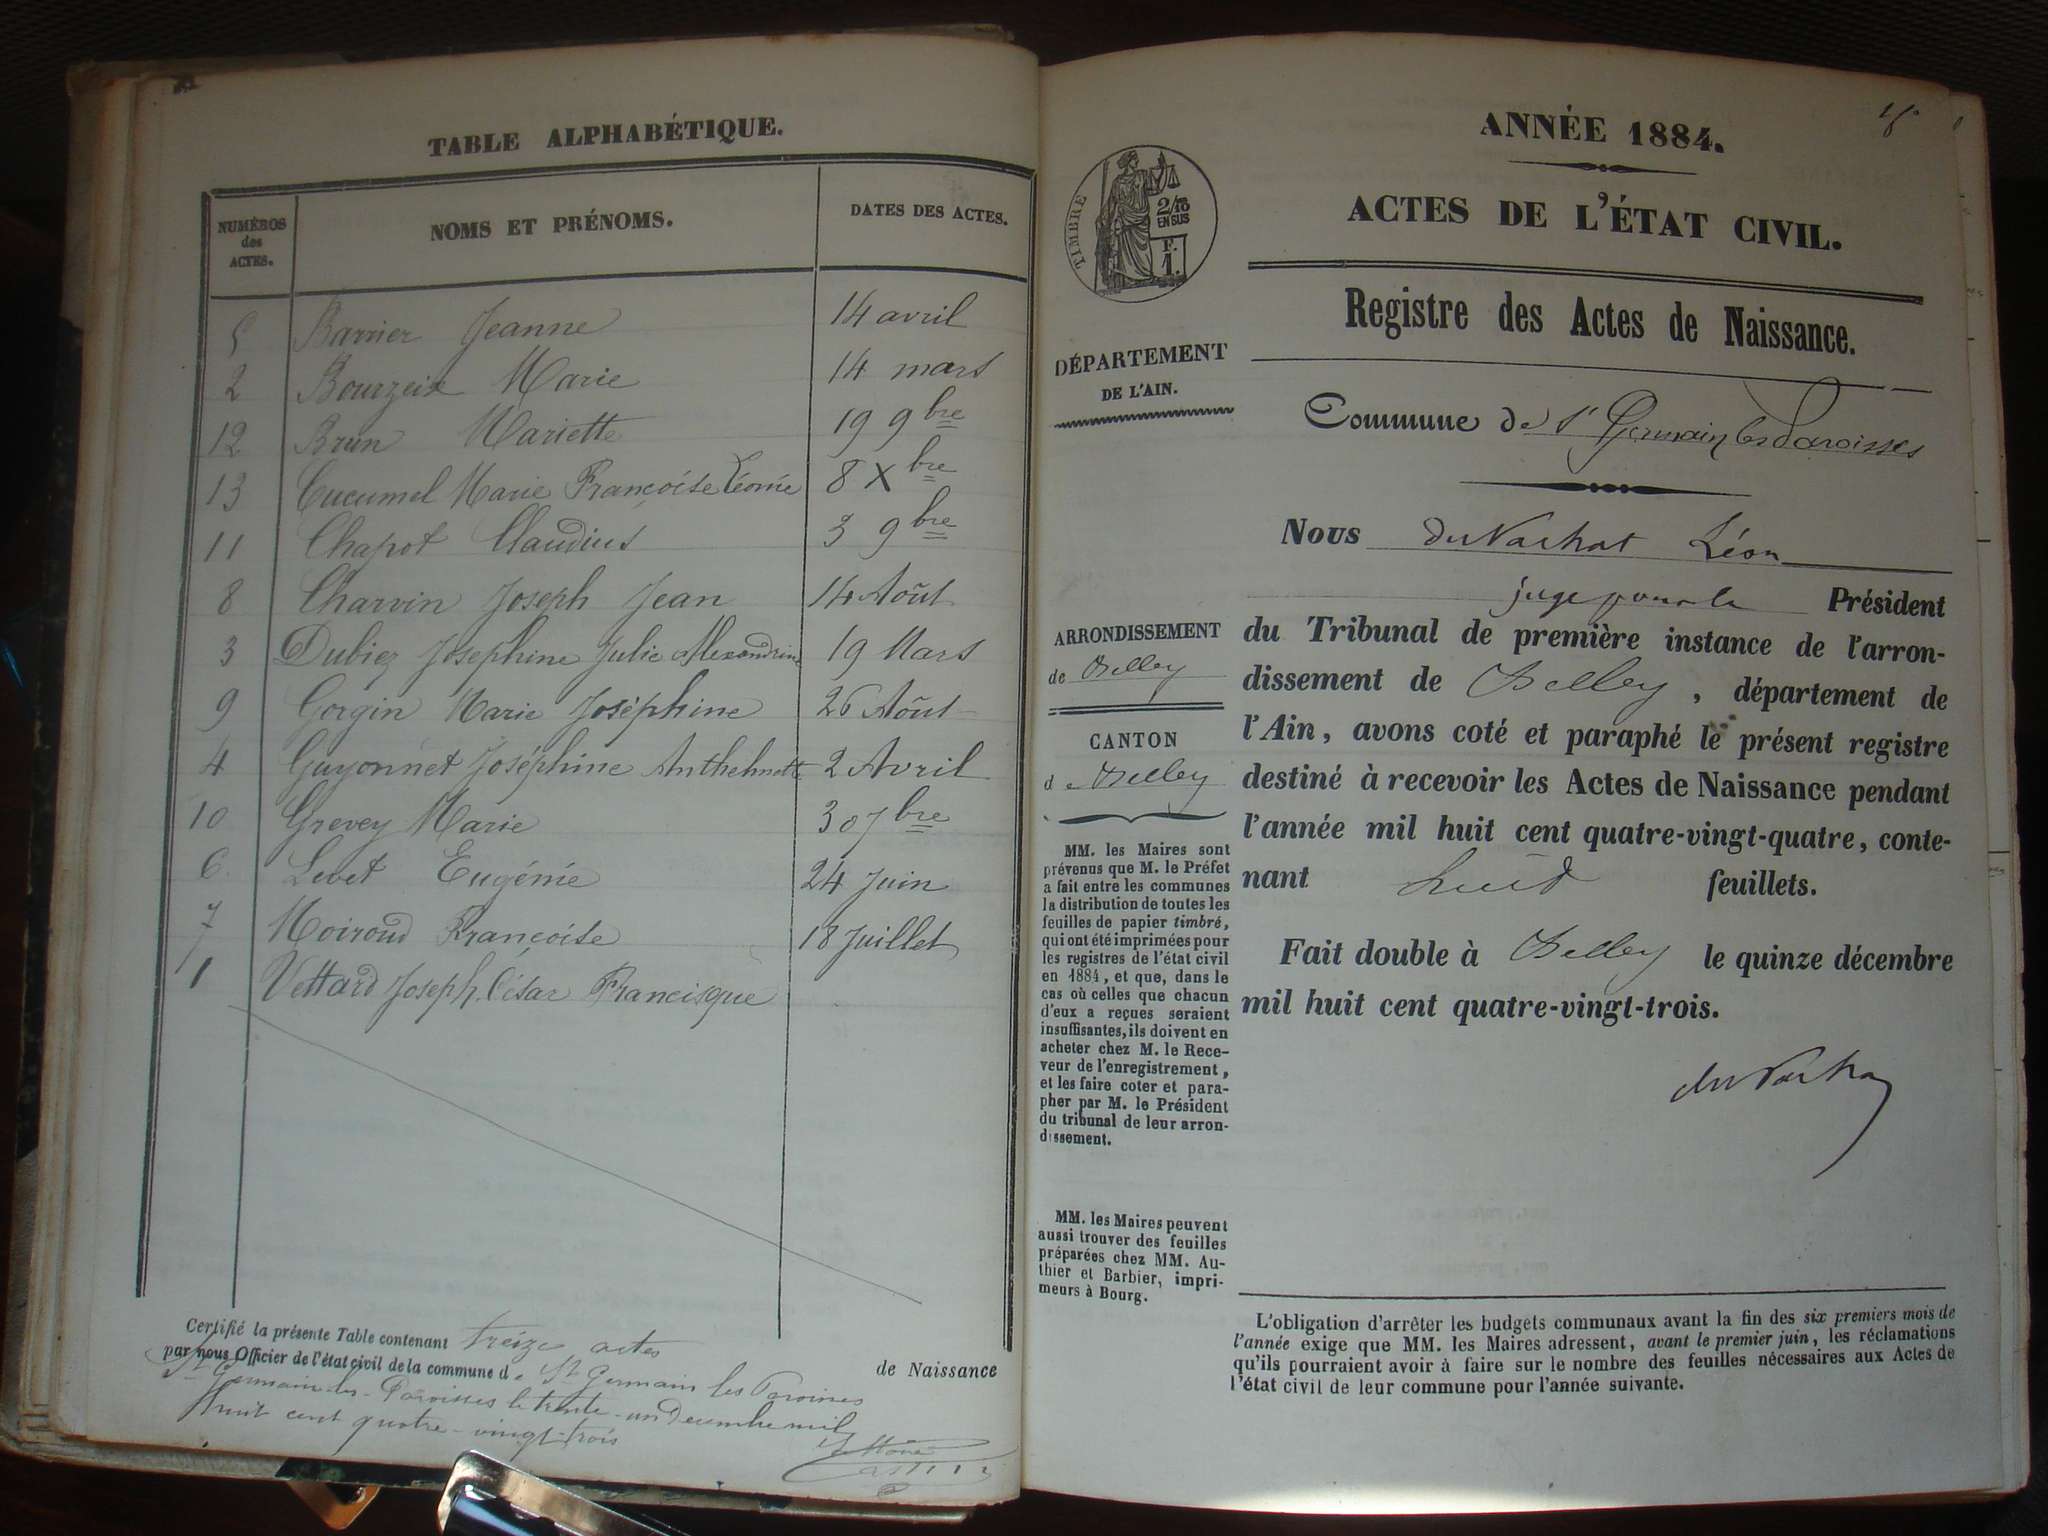 TABLE ALPHABÉTIQUE.
NUMÉROS des ACTES. NOMS ET PRÉNOMS. DATES DES ACTES.
5 Barrier Jeanne 14 avril
2 Bourzeix Marie 14 mars
12 Brun Mariette 19 9bre
13 Cucumel Marie Françoise Léonie 8 Xbre
11 Chapot Claudius 3 9bre
8 Charvin Joseph Jean 14 Août
3 Dubiez Joséphine Julie Alexandrine 19 Mars
9 Gorgin Marie Joséphine 26 Août
4 Guyonnet Joséphine Anthelmette 2 Avril
10 Grevey Marie 30 7bre
6 Levet Eugénie 24 Juin
7 Moiroud Françoise 18 Juillet
1 Vettard Joseph César Francisque
Certifié la présente Table contenant treize actes
de Naissance
par nous Officier de l'état civil de la commune de St Germain les Paroisses
St Germain-les-Paroisses le trente-un Décembre mil
huit cent quatre-vingt-trois
ANNÉE 1884.
ACTES DE L'ÉTAT CIVIL.
TIMBRE
2/10
EN SUS
F.
1.
Registre des Actes de Naissance.
DÉPARTEMENT
DE L'AIN.
Commune de St Germain les Paroisses
Nous du Nachat Léon
juge pour le Président
du Tribunal de première instance de l'arron-
dissement de Belley, département de
l'Ain, avons coté et paraphé le présent registre
destiné à recevoir les Actes de Naissance pendant
l'année mil huit cent quatre-vingt-quatre, conte-
nant huit feuillets.
Fait double à Belley le quinze décembre
mil huit cent quatre-vingt-trois.
du Nachat
ARRONDISSEMENT
de Belley
CANTON
de Belley
MM. les Maires sont
prévenus que M. le Préfet
a fait entre les communes
la distribution de toutes les
feuilles de papier timbré,
qui ont été imprimées pour
les registres de l'état civil
en 1884, et que, dans le
cas où celles que chacun
d'eux a reçues seraient
insuffisantes, ils doivent en
acheter chez M. le Rece-
veur de l'enregistrement,
et les faire coter et para-
pher par M. le Président
du tribunal de leur arron-
dissement.
MM. les Maires peuvent
aussi trouver des feuilles
préparées chez MM. Au-
thier et Barbier, impri-
meurs à Bourg.
L'obligation d'arrêter les budgets communaux avant la fin des six premiers mois de
l'année exige que MM. les Maires adressent, avant le premier juin, les réclamations
qu'ils pourraient avoir à faire sur le nombre des feuilles nécessaires aux Actes de
l'état civil de leur commune pour l'année suivante.